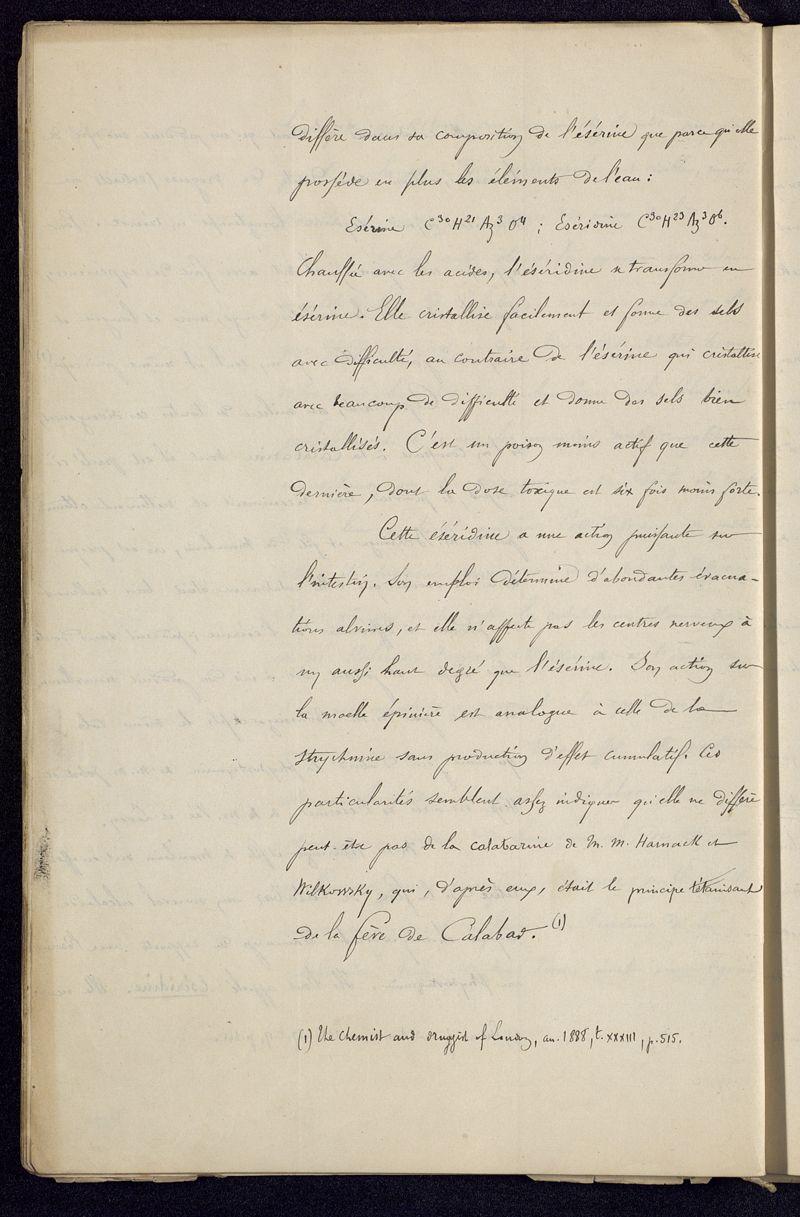 diffère dans sa composition de l'ésérine que parce qu'elle
possède en plus les éléments de l'eau :
Esérine C³⁰H²¹Az³O⁴ ; Eséridine C³⁰H²³Az³O⁶.
Chauffée avec les acides, l'éséridine se transforme en
ésérine. Elle cristallise facilement et forme des sels
avec difficulté, au contraire de l'ésérine qui cristallise
avec beaucoup de difficulté et donne des sels bien
cristallisés. C'est un poison moins actif que cette
dernière, dont la dose toxique est six fois moins forte.
Cette éséridine a une action puissante sur
l'intestin. Son emploi détermine d'abondantes évacua-
tions alvines, et elle n'affecte pas les centres nerveux à
un aussi haut degré que l'ésérine. Son action sur
la moelle épinière est analogue à celle de la
strychnine sans production d'effet cumulatif. Ces
particularités semblent assez indiquer qu'elle ne diffère
peut-être pas de la calabarine de M. M. Harnack et
Witkowsky, qui, d'après eux, était le principe tétanisant
de la fève de Calabar. (1)
(1) The Chemist and druggist of London, an. 1888, t. XXXIII, p. 515.